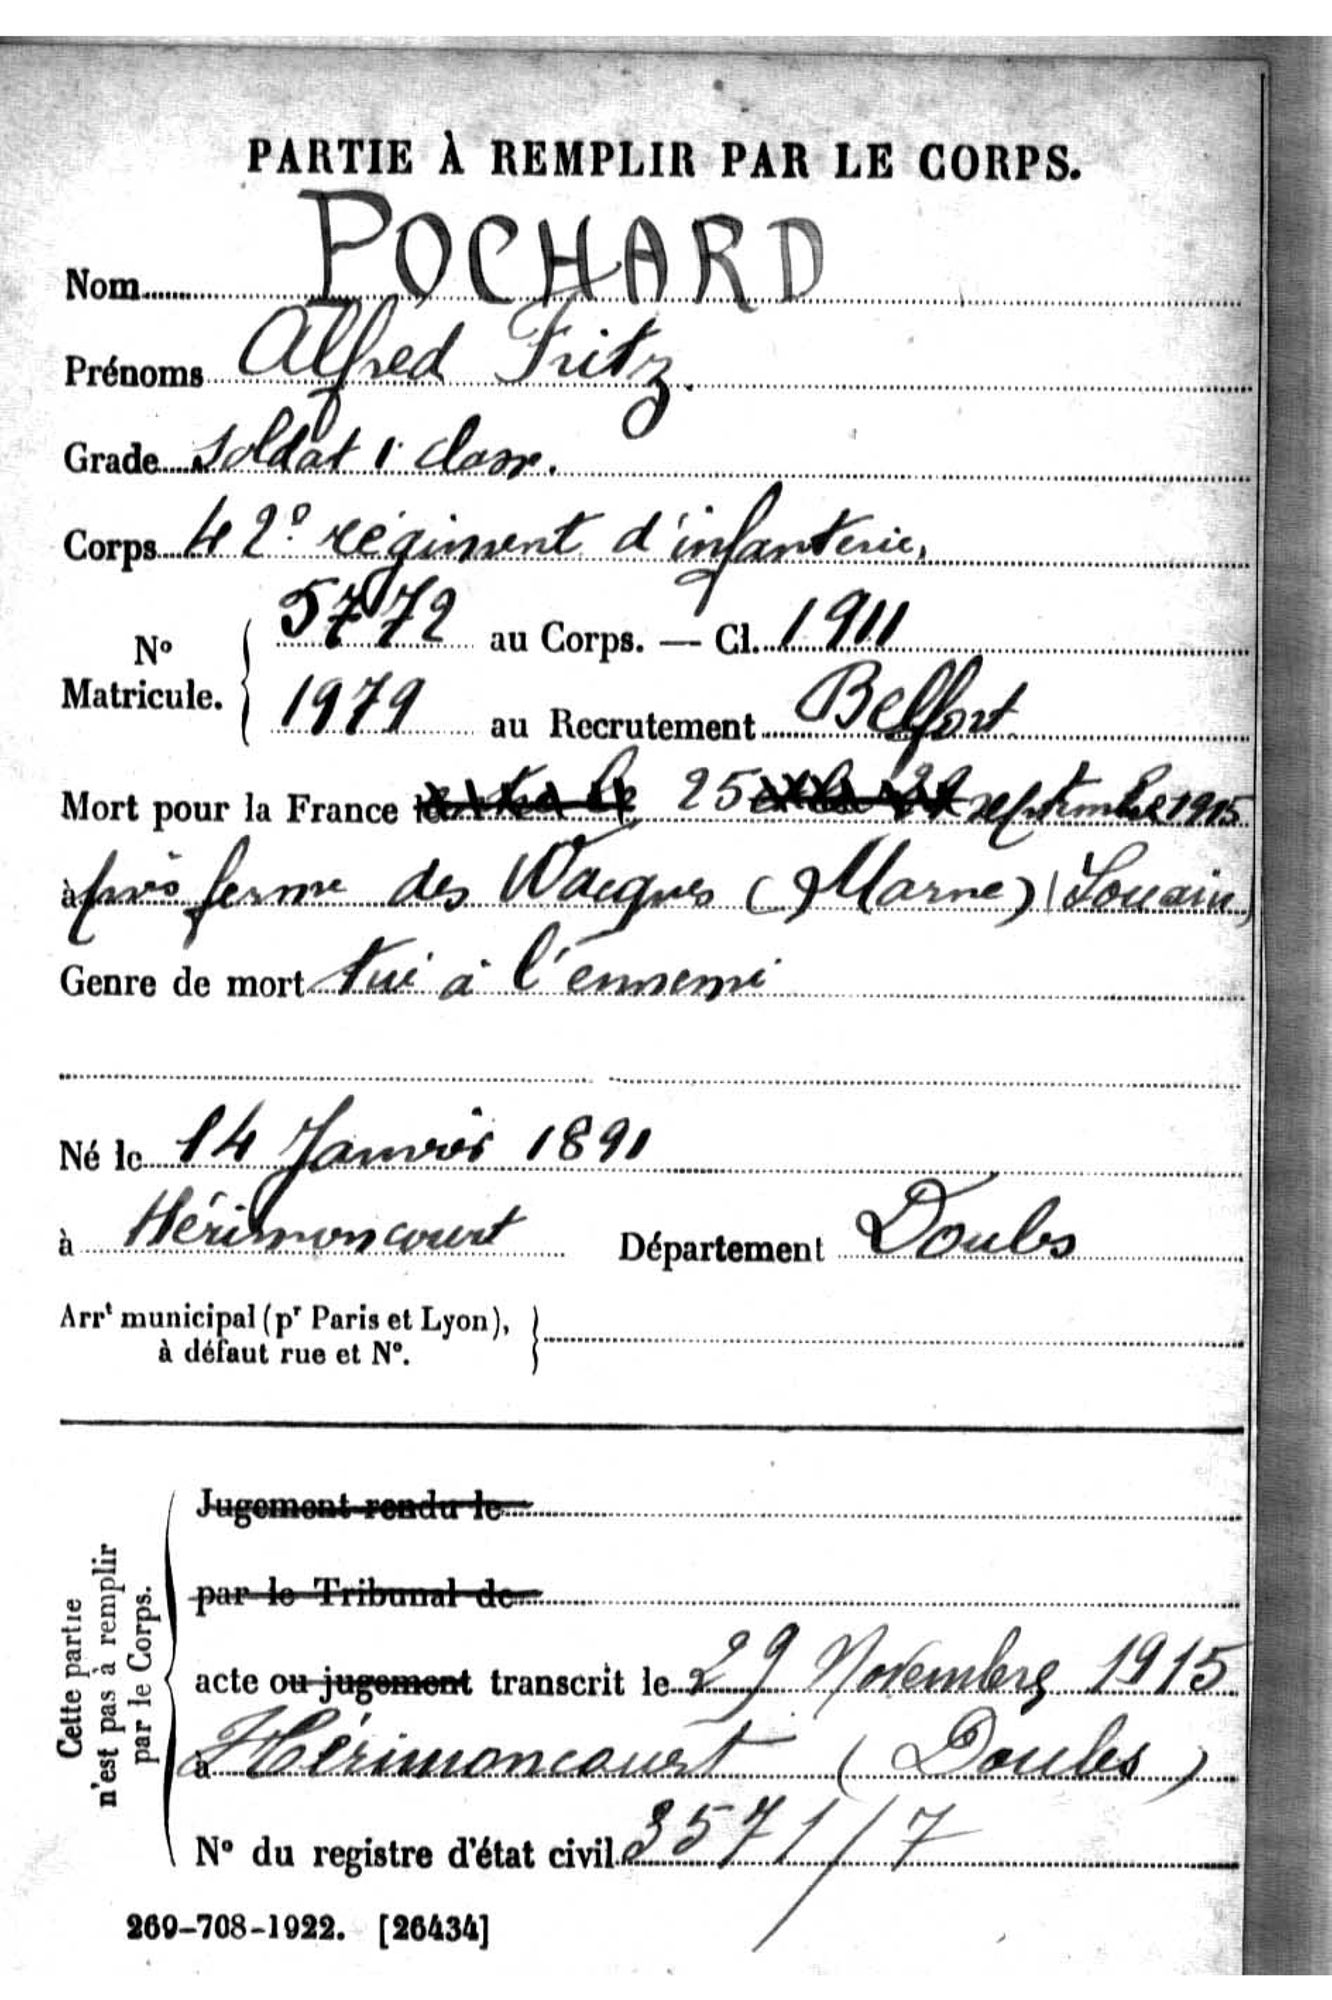 PARTIE À REMPLIR PAR LE CORPS.
Nom POCHARD
Prénoms Alfred Fritz.
Grade Soldat 1e classe.
Corps 42e régiment d'infanterie,
No Matricule. 5772 au Corps. — Cl. 1911
1979 au Recrutement Belfort
Mort pour la France le 25 septembre 1915
à près ferme des Wacques (Marne) (Souain)
Genre de mort tué à l'ennemi
Né le 14 Janvier 1891
à Hérimoncourt Département Doubs
Arrt municipal (pr Paris et Lyon),
à défaut rue et No.
Cette partie
n'est pas à remplir
par le Corps.
Jugement rendu le
par le Tribunal de
acte ou jugement transcrit le 29 Novembre 1915
à Hérimoncourt (Doubs)
No du registre d'état civil 3571/7
269-708-1922. [26434]